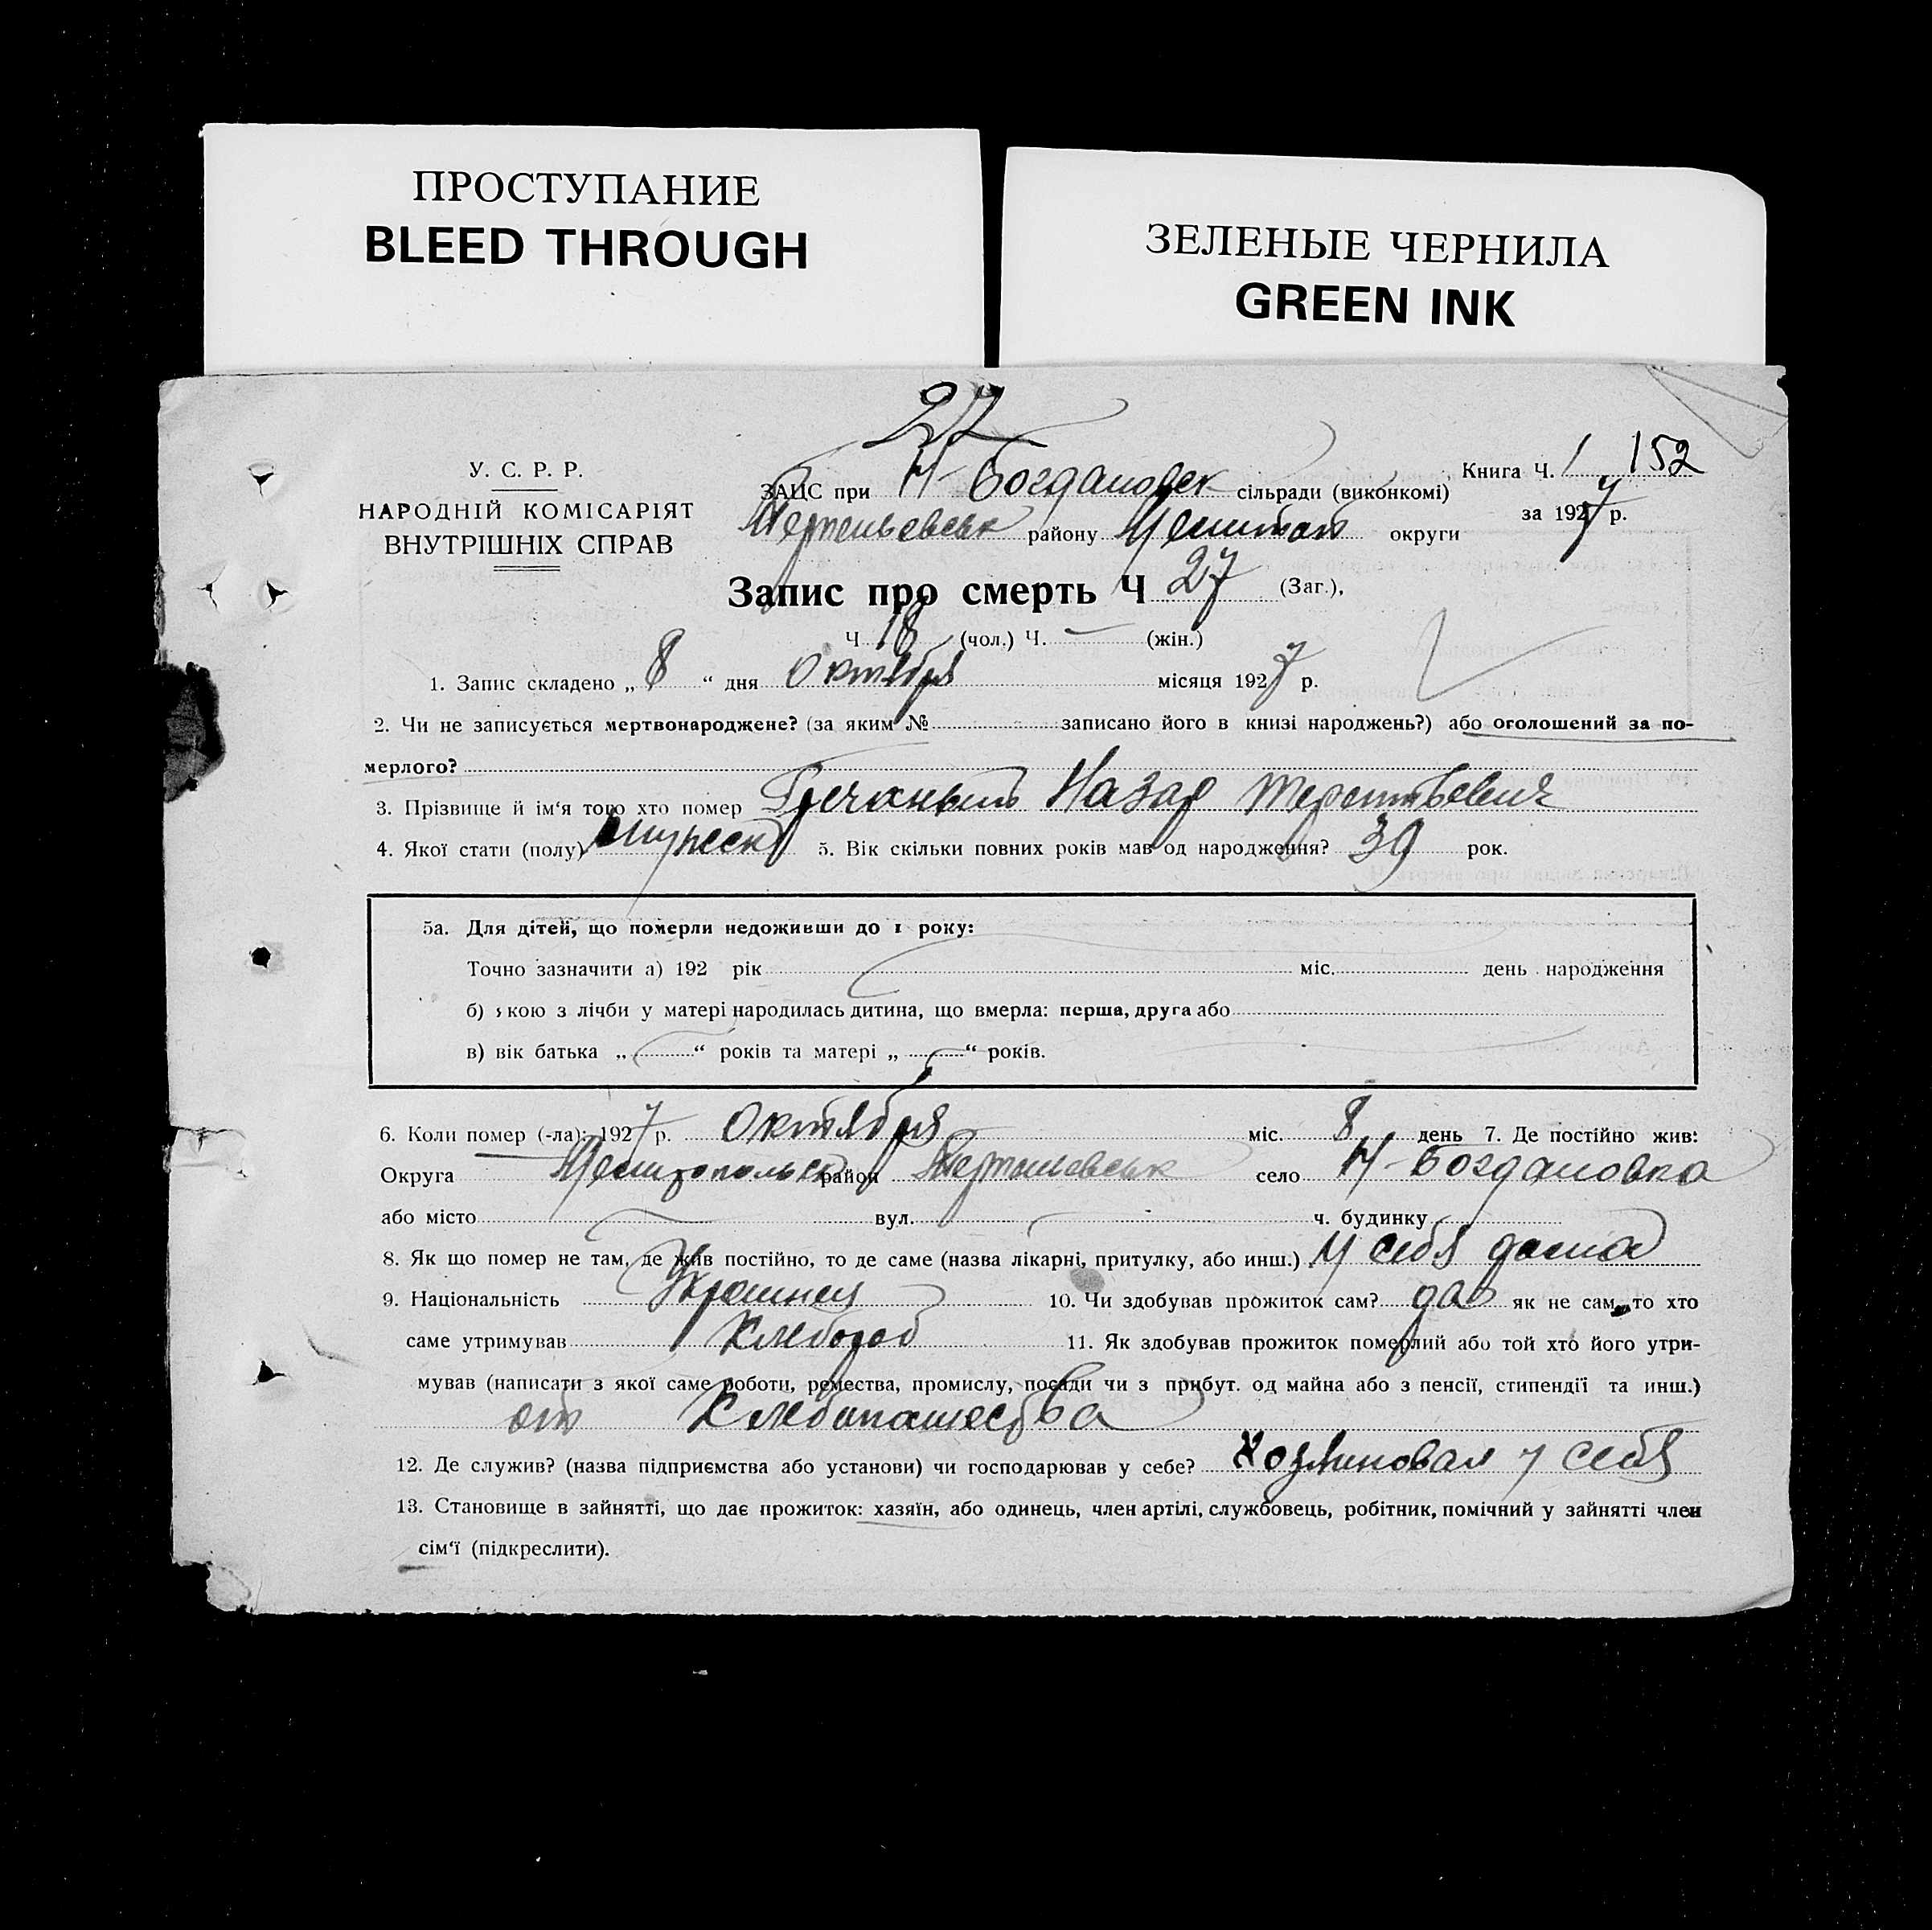 ПРОСТУПАНИЕ
BLEED THROUGH
ЗЕЛЕНЫЕ ЧЕРНИЛА
GREEN INK
27
У. С. Р. Р.
НАРОДНІЙ КОМІСАРІЯТ
ВНУТРІШНІХ СПРАВ
ЗАЦС при Н-Богдановск сільради (виконкомі)
району округи
Книга Ч. 1 152
за 1927 р.
Запис про смерть Ч 27 (Заг.),
Ч 18 (чол.) Ч. — (жін.)
1. Запис складено „ 8 “ дня Октября місяця 1927 р.
2. Чи не записується мертвонароджене? (за яким № записано його в книзі народжень?) або оголошений за по-
мерлого?
3. Прізвище й ім‘я того хто помер Гречаный Назар Терентьевич
4. Якої стати (полу) мужеск 5. Вік скільки повних років мав од народження? 39 рок.
5а. Для дітей, що померли недоживши до 1 року:
Точно зазначити а) 192 рік міс. день народження
б) якою з лічби у матері народилась дитина, що вмерла: перша, друга або
в) вік батька „ “ років та матері „ “ років.
6. Коли помер (-ла): 1927 р. Октября міс. 8 день 7. Де постійно жив:
Округа Мелитопольск район село Н-Богдановка
або місто вул. ч. будинку
8. Як що помер не там, де жив постійно, то де саме (назва лікарні, притулку, або инш.) У себя дома
9. Національність Украинец 10. Чи здобував прожиток сам? да як не сам, то хто
саме утримував Хлебороб 11. Як здобував прожиток померлий або той хто його утри-
мував (написати з якої саме роботи, ремества, промислу, посади чи з прибут. од майна або з пенсії, стипендії та инш.)
от Хлебопашества
12. Де служив? (назва підприємства або установи) чи господарював у себе? Хозяиновал у себя
13. Становище в зайнятті, що дає прожиток: хазяїн, або одинець, член артілі, службовець, робітник, помічний у зайнятті член
сім‘ї (підкреслити).